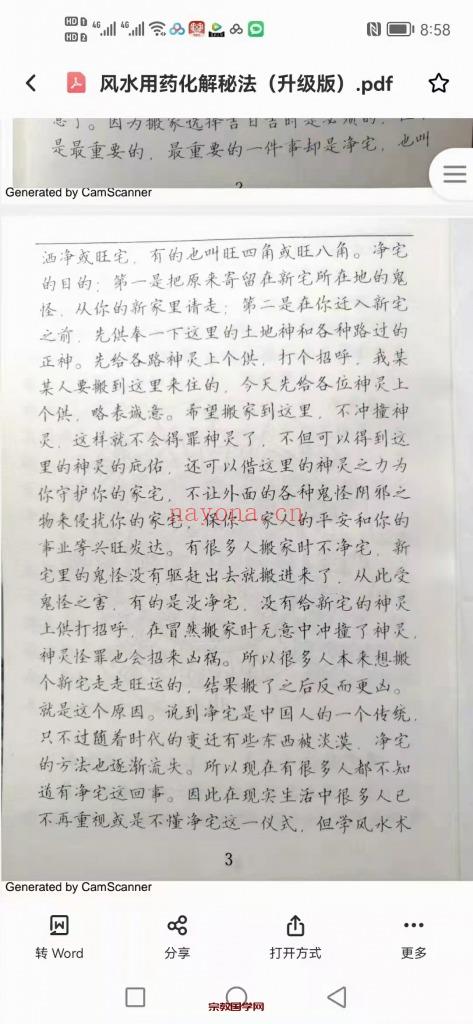 HD 1 4G 4G 8:58
HD 2
风水用药化解秘法（升级版）.pdf
是最重要的，最重要的一件事却是净宅，也叫
Generated by CamScanner
洒净或旺宅，有的也叫旺四角或旺八角。净宅
的目的：第一是把原来寄留在新宅所在地的鬼
怪，从你的新家里请走；第二是在你迁入新宅
之前，先供奉一下这里的土地神和各种路过的
正神。先给各路神灵上个供，打个招呼，我某
某人要搬到这里来住的，今天先给各位神灵上
个供，略表诚意。希望搬家到这里，不冲撞神
灵，这样就不会得罪神灵了，不但可以得到这
里的神灵的庇佑，还可以借这里的神灵之力为
你守护你的家宅，不让外面的各种鬼怪阴邪之
物来侵扰你的家宅，保你一家人的平安和你的
nayona.cn
事业等兴旺发达。有很多人搬家时不净宅，新
宅里的鬼怪没有驱赶出去就搬进来了，从此受
鬼怪之害，有的是没净宅，没有给新宅的神灵
上供打招呼，在冒然搬家时无意中冲撞了神灵，
神灵怪罪也会招来凶祸。所以很多人本来想搬
个新宅走走旺运的，结果搬了之后反而更凶。
就是这个原因。说到净宅是中国人的一个传统，
只不过随着时代的变迁有些东西被淡漠，净宅
的方法也逐渐流失。所以现在有很多人都不知
道有净宅这回事。因此在现实生活中很多人已
不再重视或是不懂净宅这一仪式，但学风水术
3
Generated by CamScanner
转 Word
分享
打开方式
更多
宗教国学网